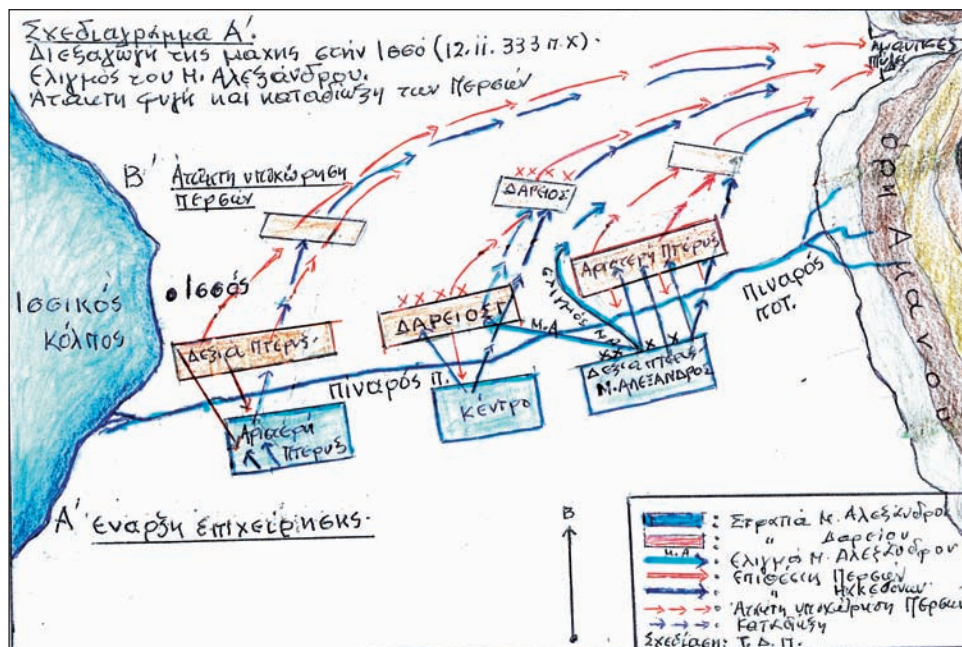 Σχεδιαγράμμα Α'.
Διεξαγωγή της μάχης στήν Ισσό (12.ii.333 π.Χ).
Ελιγμός του Μ. Αλεξάνδρου.
Άτακτη φυγή και καταδίωξη των Περσών
Αμανικές
πύλες
Β' Άτακτη υποχώρηση
περσών
ΔΑΡΕΙΟΣ
Αριστερή Πτέρυξ
όρη Αμανού
Ισσός
Ισσικός
κόλπος
Δεξιά Πτέρυξ.
ΔΑΡΕΙΟΣ Γ
ελιγμός Μ.Α
Μ.Α
Πιναρός
ποτ.
Πιναρός π.
Δεξιά πτέρυξ
Μ. ΑΛΕΞΑΝΔΡΟΣ
Κέντρο
Αριστερή
Πτέρυξ
Α' έναρξη επιχείρησης.
Β
Στρατιά Μ. Αλεξάνδρου
" Δαρείου
Μ.Α
Ελιγμό Μ. Αλεξάνδρου
Επιθέσεις Περσών
" Μακεδόνων
Άτακτη υποχώρηση Περσών
Καταδίωξη
Σχεδίαση: Τ. Δ. Π.